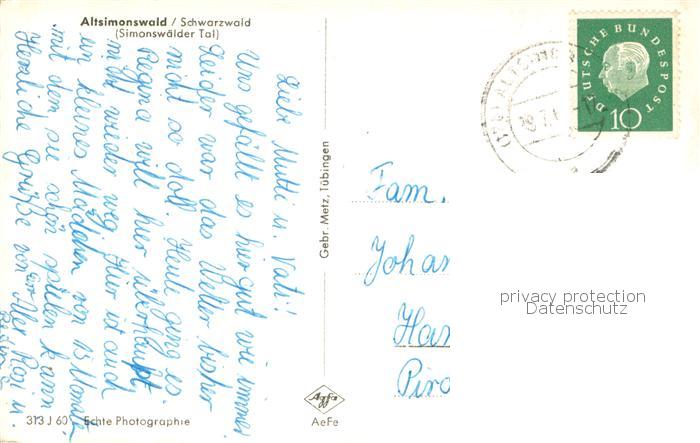 Altsimonswald / Schwarzwald
(Simonswälder Tal)
Liebe Mutti u. Vati!
Uns gefällt es hier gut wie immer
Leider war das Wetter bisher
nicht so doll. Heute ging es.
Regina will hier überhaupt
nicht wieder weg. Hier ist auch
ein kleines Mädchen von 13 Monate
mit dem sie schön spielen kann
Herzliche Grüße von
Alex Rosi u.
Gebr. Metz, Tübingen
DEUTSCHE BUNDESPOST
10
Fam.
Johan
Han
Piro
privacy protection
Datenschutz
Agfa
AeFe
313 J 60 Echte Photographie